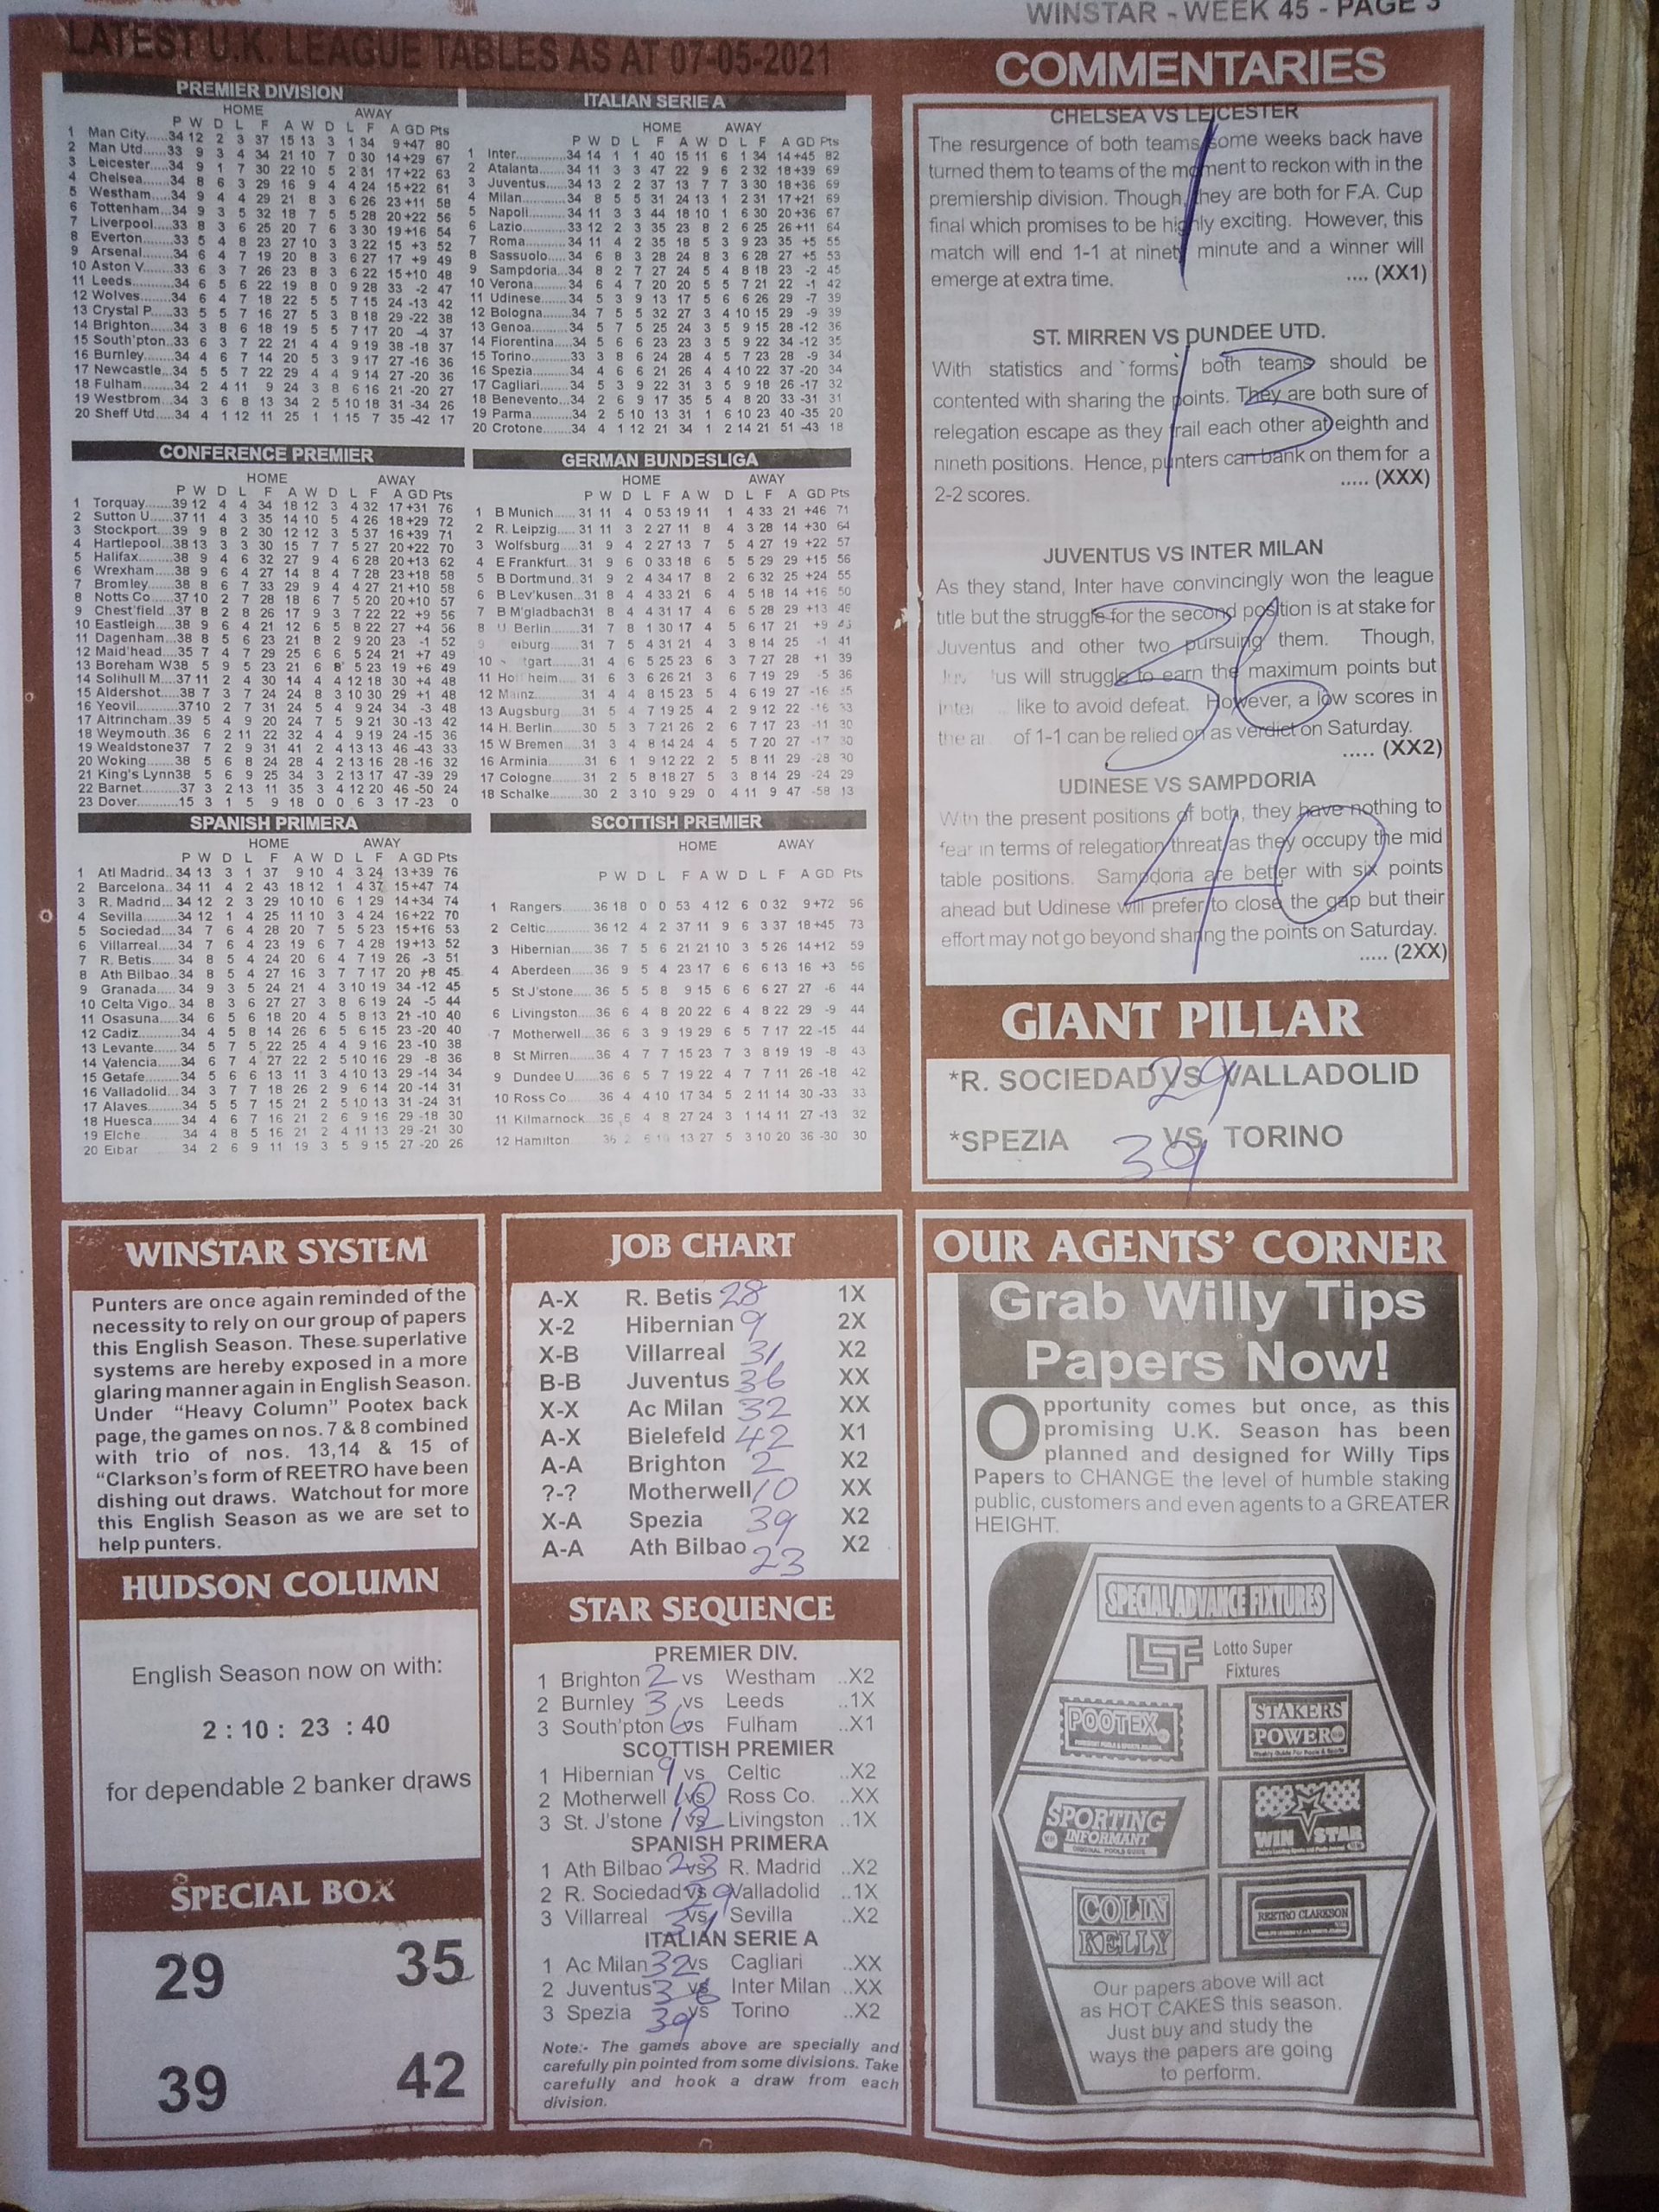 WINSTAR - WEEK 45 - PAGE 3
LATEST U.K. LEAGUE TABLES AS AT 07-05-2021
PREMIER DIVISION
HOME AWAY
P W D L F A W D L F A GD Pts
1 Man City......34 12 2 3 37 15 13 3 1 34 9 +47 80
2 Man Utd.....33 9 3 4 34 21 10 7 0 30 14 +29 67
3 Leicester.....34 9 1 7 30 22 10 5 2 31 17 +22 63
4 Chelsea.....34 8 6 3 29 16 9 4 4 24 15 +22 61
5 Westham...34 9 4 4 29 21 8 3 6 26 23 +11 58
6 Tottenham..34 9 3 5 32 18 7 5 5 28 20 +22 56
7 Liverpool.....33 8 3 6 25 20 7 6 3 30 19 +16 54
8 Everton......33 5 4 8 23 27 10 3 3 22 15 +3 52
9 Arsenal......34 6 4 7 19 20 8 3 6 27 17 +9 49
10 Aston V.....33 6 3 7 26 23 8 3 6 22 15 +10 48
11 Leeds.......34 6 5 6 22 19 8 0 9 28 33 -2 47
12 Wolves......34 6 4 7 18 22 5 5 7 15 24 -13 42
13 Crystal P....33 5 5 7 16 27 5 3 8 18 29 -22 38
14 Brighton....34 3 8 6 18 19 5 5 7 17 20 -4 37
15 South'pton..33 6 3 7 22 21 4 4 9 19 38 -18 37
16 Burnley.....34 4 6 7 14 20 5 3 9 17 27 -16 36
17 Newcastle..34 5 5 7 22 29 4 4 9 14 27 -20 36
18 Fulham......34 2 4 11 9 24 3 8 6 16 21 -20 27
19 Westbrom..34 3 6 8 13 34 2 5 10 18 31 -34 26
20 Sheff Utd....34 4 1 12 11 25 1 1 15 7 35 -42 17
ITALIAN SERIE A
HOME AWAY
P W D L F A W D L F A GD Pts
1 Inter............34 14 1 1 40 15 11 6 1 34 14 +45 82
2 Atalanta......34 11 3 3 47 22 9 6 2 32 18 +39 69
3 Juventus.....34 13 2 2 37 13 7 7 3 30 18 +36 69
4 Milan..........34 8 5 5 31 24 13 1 2 31 17 +21 69
5 Napoli.........34 11 3 3 44 18 10 1 6 30 20 +36 67
6 Lazio..........33 12 2 3 35 23 8 2 6 25 26 +11 64
7 Roma.........34 11 4 2 35 18 5 3 9 23 35 +5 55
8 Sassuolo....34 6 8 3 28 24 8 3 6 28 27 +5 53
9 Sampdoria..34 8 2 7 27 24 5 4 8 18 23 -2 45
10 Verona......34 6 4 7 20 20 5 5 7 21 22 -1 42
11 Udinese.....34 5 3 9 13 17 5 6 6 26 29 -7 39
12 Bologna.....34 7 5 5 32 27 3 4 10 15 29 -9 39
13 Genoa.......34 5 7 5 25 24 3 5 9 15 28 -12 36
14 Fiorentina....34 5 6 6 23 23 3 5 9 22 34 -12 35
15 Torino........33 3 8 6 24 28 4 5 7 23 28 -9 34
16 Spezia.......34 4 6 6 21 26 4 4 10 22 37 -20 34
17 Cagliari......34 5 3 9 22 31 3 5 9 18 26 -17 32
18 Benevento..34 2 6 9 17 35 5 4 8 20 33 -31 31
19 Parma.......34 2 5 10 13 31 1 6 10 23 40 -35 20
20 Crotone.....34 4 1 12 21 34 1 2 14 21 51 -43 18
CONFERENCE PREMIER
HOME AWAY
P W D L F A W D L F A GD Pts
1 Torquay......39 12 4 4 34 18 12 3 4 32 17 +31 76
2 Sutton U.....37 11 4 3 35 14 10 5 4 26 18 +29 72
3 Stockport....39 9 8 2 30 12 12 3 5 37 16 +39 71
4 Hartlepool...38 13 3 3 30 15 7 7 5 27 20 +22 70
5 Halifax........38 9 4 6 32 27 9 4 6 28 20 +13 62
6 Wrexham...38 9 6 4 27 14 8 4 7 28 23 +18 58
7 Bromley......38 8 6 7 33 29 9 4 4 27 21 +10 58
8 Notts Co.....37 10 2 7 28 18 6 7 5 20 20 +10 57
9 Chest'field ..37 8 2 8 26 17 9 3 7 22 22 +9 56
10 Eastleigh....38 9 6 4 21 12 6 5 8 22 27 +4 56
11 Dagenham..38 8 5 6 23 21 8 2 9 20 23 -1 52
12 Maid'head...35 7 4 7 29 25 6 6 5 24 21 +7 49
13 Boreham W38 5 9 5 23 21 6 8 5 23 19 +6 49
14 Solihull M....37 11 2 4 30 14 4 4 12 18 30 +4 48
15 Aldershot....38 7 3 7 24 24 8 3 10 30 29 +1 48
16 Yeovil........37 10 2 7 31 24 5 4 9 24 34 -3 48
17 Altrincham..39 5 4 9 20 24 7 5 9 21 30 -13 42
18 Weymouth..36 6 2 11 22 32 4 4 9 19 24 -15 36
19 Wealdstone37 7 2 9 31 41 2 4 13 13 46 -43 33
20 Woking......38 5 6 8 24 28 4 2 13 16 28 -16 32
21 King's Lynn38 5 6 9 25 34 3 2 13 17 47 -39 29
22 Barnet.......37 3 2 13 11 35 3 4 12 20 46 -50 24
23 Dover........15 3 1 5 9 18 0 0 6 3 17 -23 0
GERMAN BUNDESLIGA
HOME AWAY
P W D L F A W D L F A GD Pts
1 B Munich......31 11 4 0 53 19 11 1 4 33 21 +46 71
2 R. Leipzig....31 11 3 2 27 11 8 4 3 28 14 +30 64
3 Wolfsburg....31 9 4 2 27 13 7 5 4 27 19 +22 57
4 E Frankfurt...31 9 6 0 33 18 6 5 5 29 29 +15 56
5 B Dortmund..31 9 2 4 34 17 8 2 6 32 25 +24 55
6 B Lev'kusen..31 8 4 4 33 21 6 4 5 18 14 +16 50
7 B M'gladbach31 8 4 4 31 17 4 6 5 28 29 +13 46
8 U Berlin......31 7 8 1 30 17 4 5 6 17 21 +9
9 eiburg......31 7 5 4 31 21 4 3 8 14 25 -1 41
10 tgart.....31 4 6 5 25 23 6 3 7 27 28 +1 39
11 Ho heim....31 6 3 6 26 21 3 6 7 19 29 -5 36
12 Mainz........31 4 4 8 15 23 5 4 6 19 27 -16 35
13 Augsburg....31 5 4 7 19 25 4 2 9 12 22 -16 33
14 H. Berlin......30 5 3 7 21 26 2 6 7 17 23 -11 30
15 W Bremen...31 3 4 8 14 24 4 5 7 20 27 -17 30
16 Arminia......31 6 1 9 12 22 2 5 8 11 29 -28 30
17 Cologne......31 2 5 8 18 27 5 3 8 14 29 -24 29
18 Schalke......30 2 3 10 9 29 0 4 11 9 47 -58 13
SPANISH PRIMERA
HOME AWAY
P W D L F A W D L F A GD Pts
1 Atl Madrid..34 13 3 1 37 9 10 4 3 24 13 +39 76
2 Barcelona..34 11 4 2 43 18 12 1 4 37 15 +47 74
3 R. Madrid...34 12 2 3 29 10 10 6 1 29 14 +34 74
4 Sevilla......34 12 1 4 25 11 10 3 4 24 16 +22 70
5 Sociedad...34 7 6 4 28 20 7 5 5 23 15 +16 53
6 Villarreal.....34 7 6 4 23 19 6 7 4 28 19 +13 52
7 R. Betis.....34 8 5 4 24 20 6 4 7 19 26 -3 51
8 Ath Bilbao..34 8 5 4 27 16 3 7 7 17 20 +8 45
9 Granada.....34 9 3 5 24 21 4 3 10 19 34 -12 45
10 Celta Vigo..34 8 3 6 27 27 3 8 6 19 24 -5 44
11 Osasuna....34 6 5 6 18 20 4 5 8 13 21 -10 40
12 Cadiz.......34 4 5 8 14 26 6 5 6 15 23 -20 40
13 Levante.....34 5 7 5 22 25 4 4 9 16 23 -10 38
14 Valencia....34 6 7 4 27 22 2 5 10 16 29 -8 36
15 Getafe......34 5 6 6 13 11 3 4 10 13 29 -14 34
16 Valladolid...34 3 7 7 18 26 2 9 6 14 20 -14 31
17 Alaves......34 5 5 7 15 21 2 5 10 13 31 -24 31
18 Huesca.....34 4 6 7 16 21 2 6 9 16 29 -18 30
19 Elche 34 4 8 5 16 21 2 4 11 13 29 -21 30
20 Eibar 34 2 6 9 11 19 3 5 9 15 27 -20 26
SCOTTISH PREMIER
HOME AWAY
P W D L F A W D L F A GD Pts
1 Rangers.......36 18 0 0 53 4 12 6 0 32 9 +72 96
2 Celtic..........36 12 4 2 37 11 9 6 3 37 18 +45 73
3 Hibernian.....36 7 5 6 21 21 10 3 5 26 14 +12 59
4 Aberdeen.....36 9 5 4 23 17 6 6 6 13 16 +3 56
5 St J'stone.....36 5 5 8 9 15 6 6 6 27 27 -6 44
6 Livingston....36 6 4 8 20 22 6 4 8 22 29 -9 44
7 Motherwell...36 6 3 9 19 29 6 5 7 17 22 -15 44
8 St Mirren......36 4 7 7 15 23 7 3 8 19 19 -8 43
9 Dundee U....36 6 5 7 19 22 4 7 7 11 26 -18 42
10 Ross Co.....36 4 4 10 17 34 5 2 11 14 30 -33 33
11 Kilmarnock...36 6 4 8 27 24 3 1 14 11 27 -13 32
12 Hamilton 36 2 6 13 27 5 3 10 20 36 -30 30
COMMENTARIES
CHELSEA VS LEICESTER
1
The resurgence of both teams some weeks back have
turned them to teams of the moment to reckon with in the
premiership division. Though, they are both for F.A. Cup
final which promises to be highly exciting. However, this
match will end 1-1 at ninety minute and a winner will
emerge at extra time. .... (XX1)
ST. MIRREN VS DUNDEE UTD.
13
With statistics and forms both teams should be
contented with sharing the points. They are both sure of
relegation escape as they trail each other at eighth and
nineth positions. Hence, punters can bank on them for a
2-2 scores. ..... (XXX)
JUVENTUS VS INTER MILAN
36
As they stand, Inter have convincingly won the league
title but the struggle for the second position is at stake for
Juventus and other two pursuing them. Though,
Juv us will struggle to earn the maximum points but
Inter like to avoid defeat. However, a low scores in
the of 1-1 can be relied on as verdict on Saturday.
..... (XX2)
UDINESE VS SAMPDORIA
40
With the present positions of both, they have nothing to
fear in terms of relegation threat as they occupy the mid
table positions. Sampdoria are better with six points
ahead but Udinese will prefer to close the gap but their
effort may not go beyond sharing the points on Saturday.
..... (2XX)
GIANT PILLAR
*R. SOCIEDAD VS VALLADOLID
29
*SPEZIA VS TORINO
39
WINSTAR SYSTEM
Punters are once again reminded of the
necessity to rely on our group of papers
this English Season. These superlative
systems are hereby exposed in a more
glaring manner again in English Season.
Under "Heavy Column" Pootex back
page, the games on nos. 7 & 8 combined
with trio of nos. 13,14 & 15 of
"Clarkson's form of REETRO have been
dishing out draws. Watchout for more
this English Season as we are set to
help punters.
HUDSON COLUMN
English Season now on with:
2 : 10 : 23 : 40
for dependable 2 banker draws
SPECIAL BOX
29 35
39 42
JOB CHART
A-X R. Betis 28 1X
X-2 Hibernian 9 2X
X-B Villarreal 31 X2
B-B Juventus 36 XX
X-X Ac Milan 32 XX
A-X Bielefeld 42 X1
A-A Brighton 2 X2
?-? Motherwell 10 XX
X-A Spezia 39 X2
A-A Ath Bilbao 23 X2
STAR SEQUENCE
PREMIER DIV.
1 Brighton 2 vs Westham ..X2
2 Burnley 3 vs Leeds ..1X
3 South'pton 6 vs Fulham ..X1
SCOTTISH PREMIER
1 Hibernian 9 vs Celtic ..X2
2 Motherwell 10 vs Ross Co. ..XX
3 St. J'stone 12 vs Livingston ..1X
SPANISH PRIMERA
1 Ath Bilbao 23 vs R. Madrid ..X2
2 R. Sociedad 29 vs Valladolid ..1X
3 Villarreal 31 vs Sevilla ..X2
ITALIAN SERIE A
1 Ac Milan 32 vs Cagliari ..XX
2 Juventus 36 vs Inter Milan ..XX
3 Spezia 39 vs Torino ..X2
Note:- The games above are specially and
carefully pin pointed from some divisions. Take
carefully and hook a draw from each
division.
OUR AGENTS' CORNER
Grab Willy Tips
Papers Now!
Opportunity comes but once, as this
promising U.K. Season has been
planned and designed for Willy Tips
Papers to CHANGE the level of humble staking
public, customers and even agents to a GREATER
HEIGHT.
SPECIAL ADVANCE FIXTURES
LSF Lotto Super
Fixtures
POOTEX
STAKERS
POWER
SPORTING
INFORMANT
WIN STAR
COLIN
KELLY
REETRO CLARKSON
Our papers above will act
as HOT CAKES this season.
Just buy and study the
ways the papers are going
to perform.